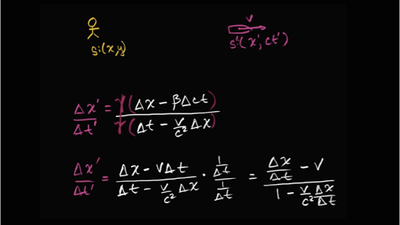 v
S:(x,y)
S'(x',ct')
Δx'/Δt' = γ(Δx − βΔct) / γ(Δt − v/c² Δx)
Δx'/Δt' = (Δx − vΔt) / (Δt − v/c² Δx) · (1/Δt) / (1/Δt) = (Δx/Δt − v) / (1 − v/c² Δx/Δt)